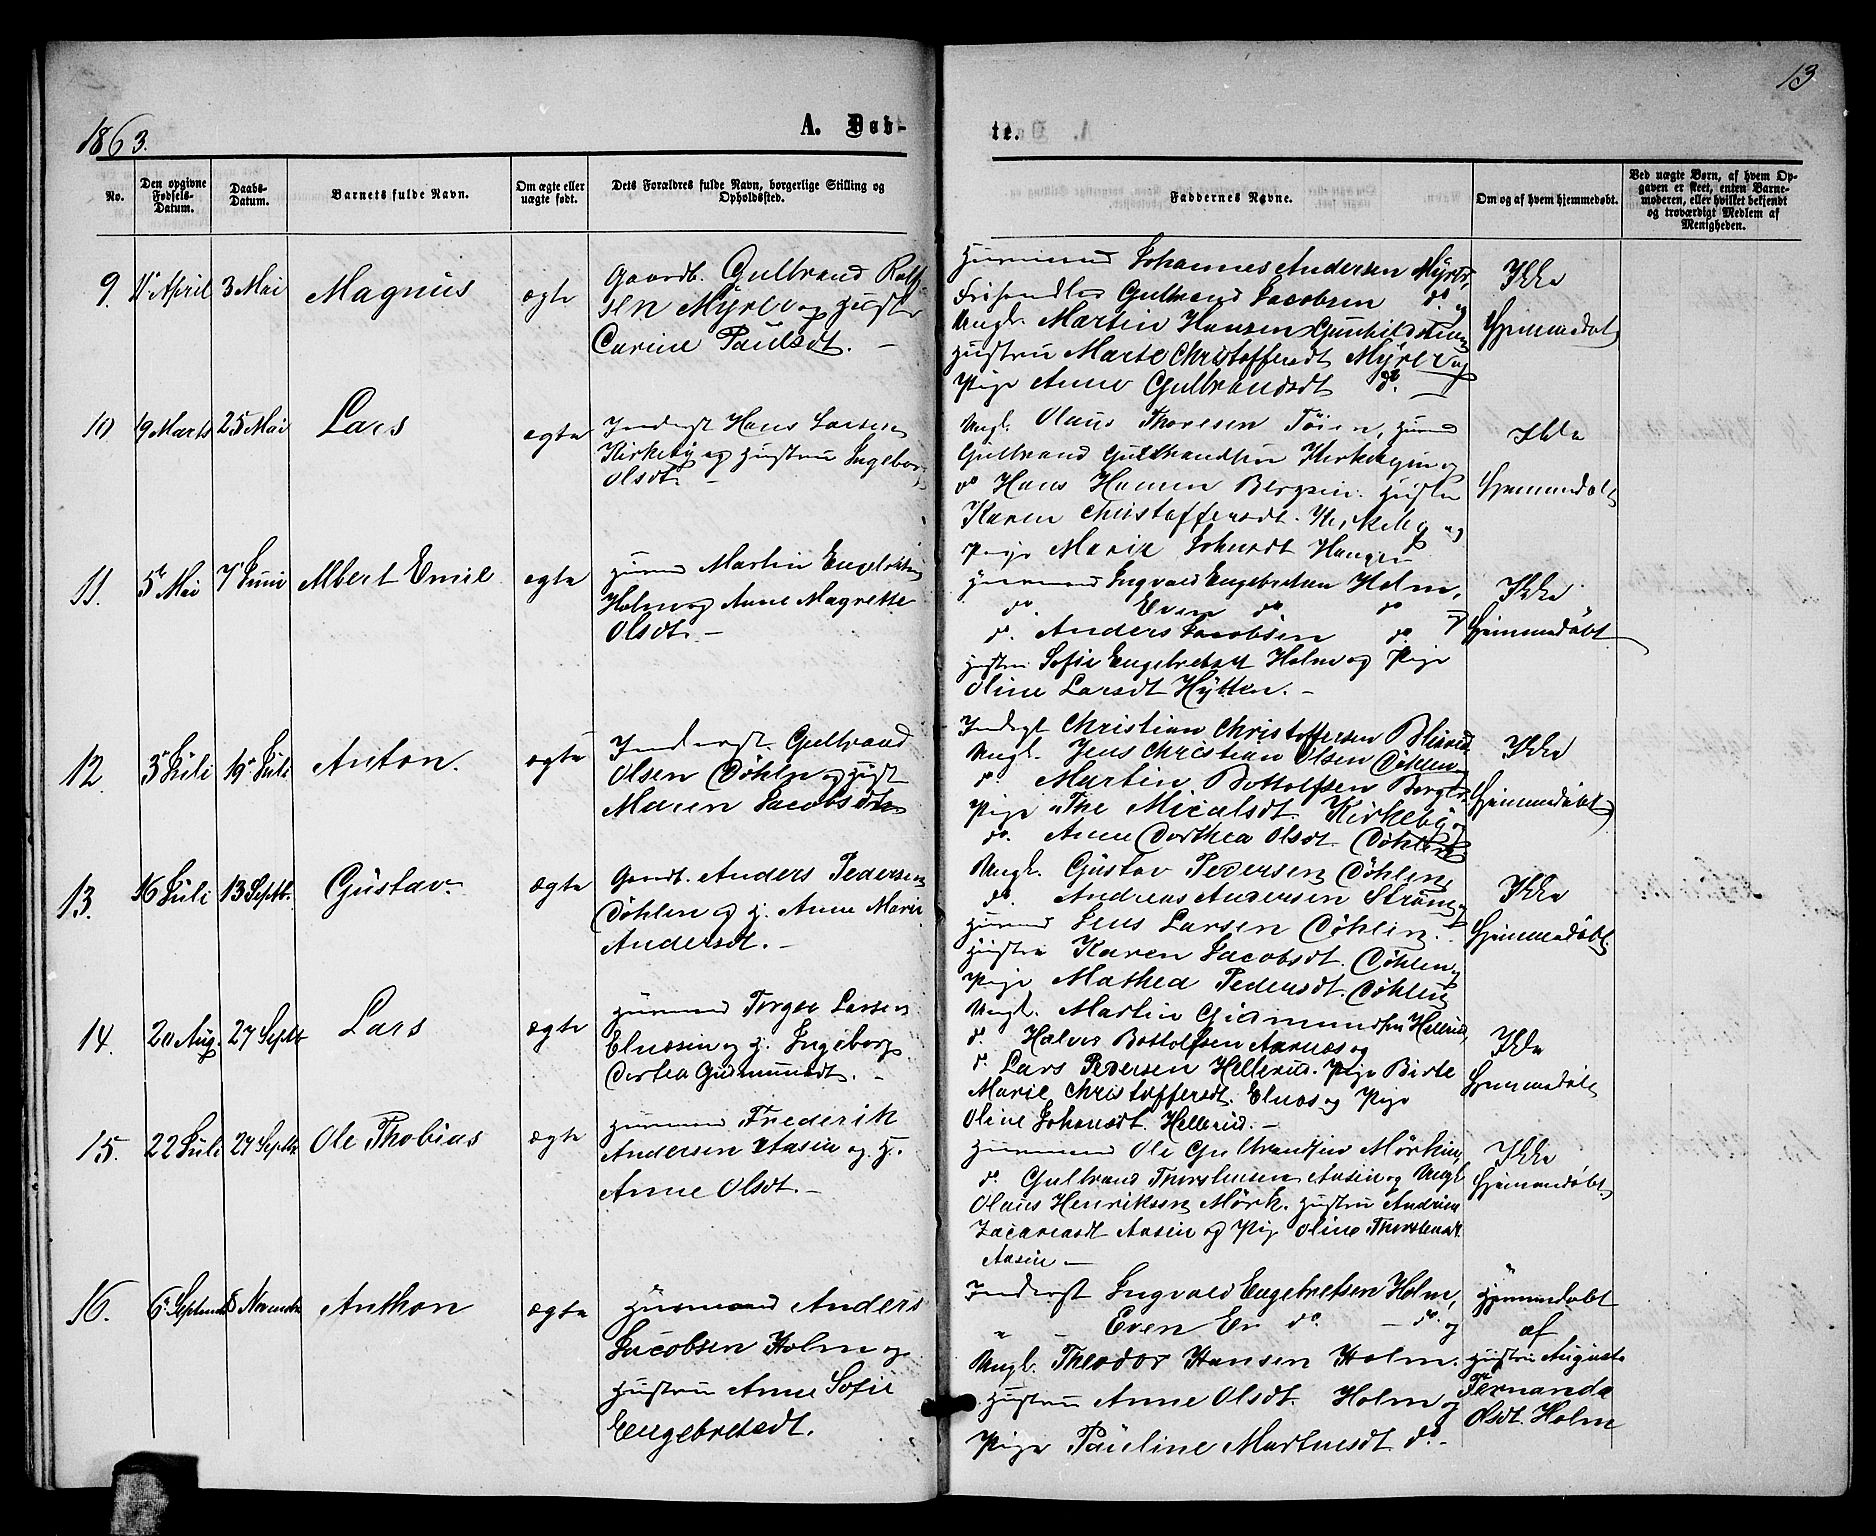 13
1863.
A. Døb-
te.
No.
Den opgivne Fødsels-Datum.
Daabs-Datum.
Barnets fulde Navn.
Om ægte eller uægte født.
Dets Forældres fulde Navn, borgerlige Stilling og Opholdssted.
Faddernes Navne.
Om og af hvem hjemmedøbt.
Ved uægte Børn, af hvem Opgaven er skeet, enten Barnemoderen, eller hvilket bekjendt og troværdigt Medlem af Menigheden.
9. 11 April 3 Mai Magnus ægte
Gaardb. Gulbrand Rolf-
sen Myrer og Hustr
Carine Paulsdt. –
Huusmand Johannes Andersen Myrer,
Gulbrand Jacobsen do og
Ungk. Martin Hansen
Hustru Marte Christoffersdt Myrer og
Pige Anne Gulbrandsdt do.
Ikke
Hjemmedøbt
10 19 Marts 25 Mai Lars ægte
Inderst Hans Larsen
Kirkeby og Hustru Ingeborg
Olsdt. –
Ungk. Olaus Thoresen Töien, Huusm
Gulbrand Gulbrandsen og
do Hans Hansen Hustru
Karen Christoffersdt. Kirkeby og
Pige Marie Johnsdt Haugen
Ikke
Hjemmedøbt
11. 5 Mai 7 Juni Albert Emil ægte
Huusm Martin Engebretsen
Holm og Anne Magrette
Olsdt. –
Huusmand Ingvald Engebretsen Holm,
do. Even do do
do. Anders Jacobsen do. og
Hustru Sofie Engebretsdt Holm og Pige
Oline Larsdt Hytten. –
Ikke
Hjemmedøbt
12. 3 Juli 19 Juli Anton. ægte
Inderst. Gulbrand
Olsen Döhlen og Hust
Maren Jacobsdt
Inderst Christian Christoffersen
Ungk. Jens Christian Olsen Döhlen
do. Martin Bottolfsen
Pige Micalsdt. Kirkeby og
do. Anne Dorthea Olsdt. Döhlen
Ikke
Hjemmedøbt
13. 16 Juli 13 Septb. Gustav ægte
Gaardb. Anders Pedersen
Döhlen og H. Anne Marie
Andersdt. –
Ungk. Gustav Pedersen Döhlen,
do. Andreas Andersen Ström og
Huusm Jens Larsen Döhlen. –
Hustru Karen Jacobsdt. Döhlen og
Pige Mathea Pedersdt. Döhlen
Ikke
Hjemmedøbt
14. 20 Aug. 27 Septb Lars ægte
Huusmand Torger Larsen
og H. Ingeborg
Dortea Gudmundsdt. –
Ungk. Martin Gudmundsen Hellerud,
do. Halvor Bottolfsen Aarnæs og
do. Lars Pedersen Hellerud. Pige Birte
Marie Christoffersdt. Elnæs og Pige
Oline Johansdt. Hellerud. –
Ikke
Hjemmedøbt
15. 22 Juli 27 Septb Ole Thobias ægte
Huusmand Frederik
Andersen Aasen og H.
Anne Olsdt. –
Huusmand Ole Gulbrandsen
do. Gulbrand Thorstensen Aasen og Ungk
Olaus Henriksen Mörk. Hustru Andrine
Zacariasdt Aasen og Pige Oline Thorstensdt.
Aasen –
Ikke
Hjemmedøbt
16. 6 Septemb 8 Novemb Anthon ægte
Huusmand Anders
Jacobsen Holm og
Hustru Anne Sofie
Engebretsdt.
Inderst Ingvald Engebretsen Holm,
" Even En do. – do. og
Ungk. Theodor Hansen Holm.
Hustru Anne Olsdt. Holm og
Pige Pauline Martnesdt do. –
Hjemmedøbt
af
Hustru Augusta
Fernanda
Olsdt. Holm